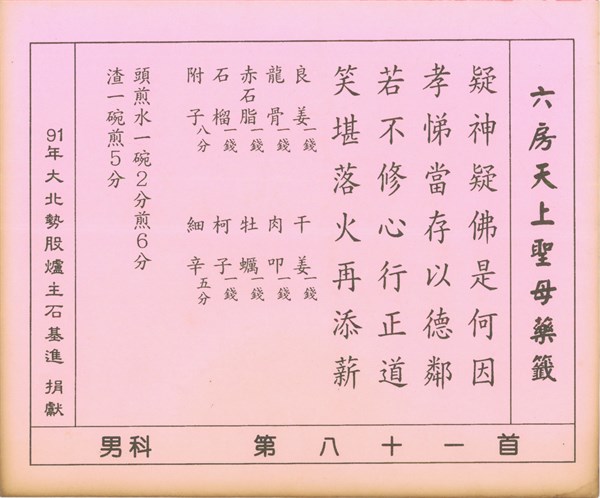 六房天上聖母藥籤
疑神疑佛是何因
孝悌當存以德鄰
若不修心行正道
笑堪落火再添薪
良姜一錢 干姜一錢
龍骨一錢 肉叩一錢
赤石脂一錢 牡蠣一錢
石榴一錢 柯子一錢
附子八分 細辛五分
頭煎水一碗2分煎6分
渣一碗煎5分
91年大北勢股爐主石基進 捐獻
男科 第八十一首